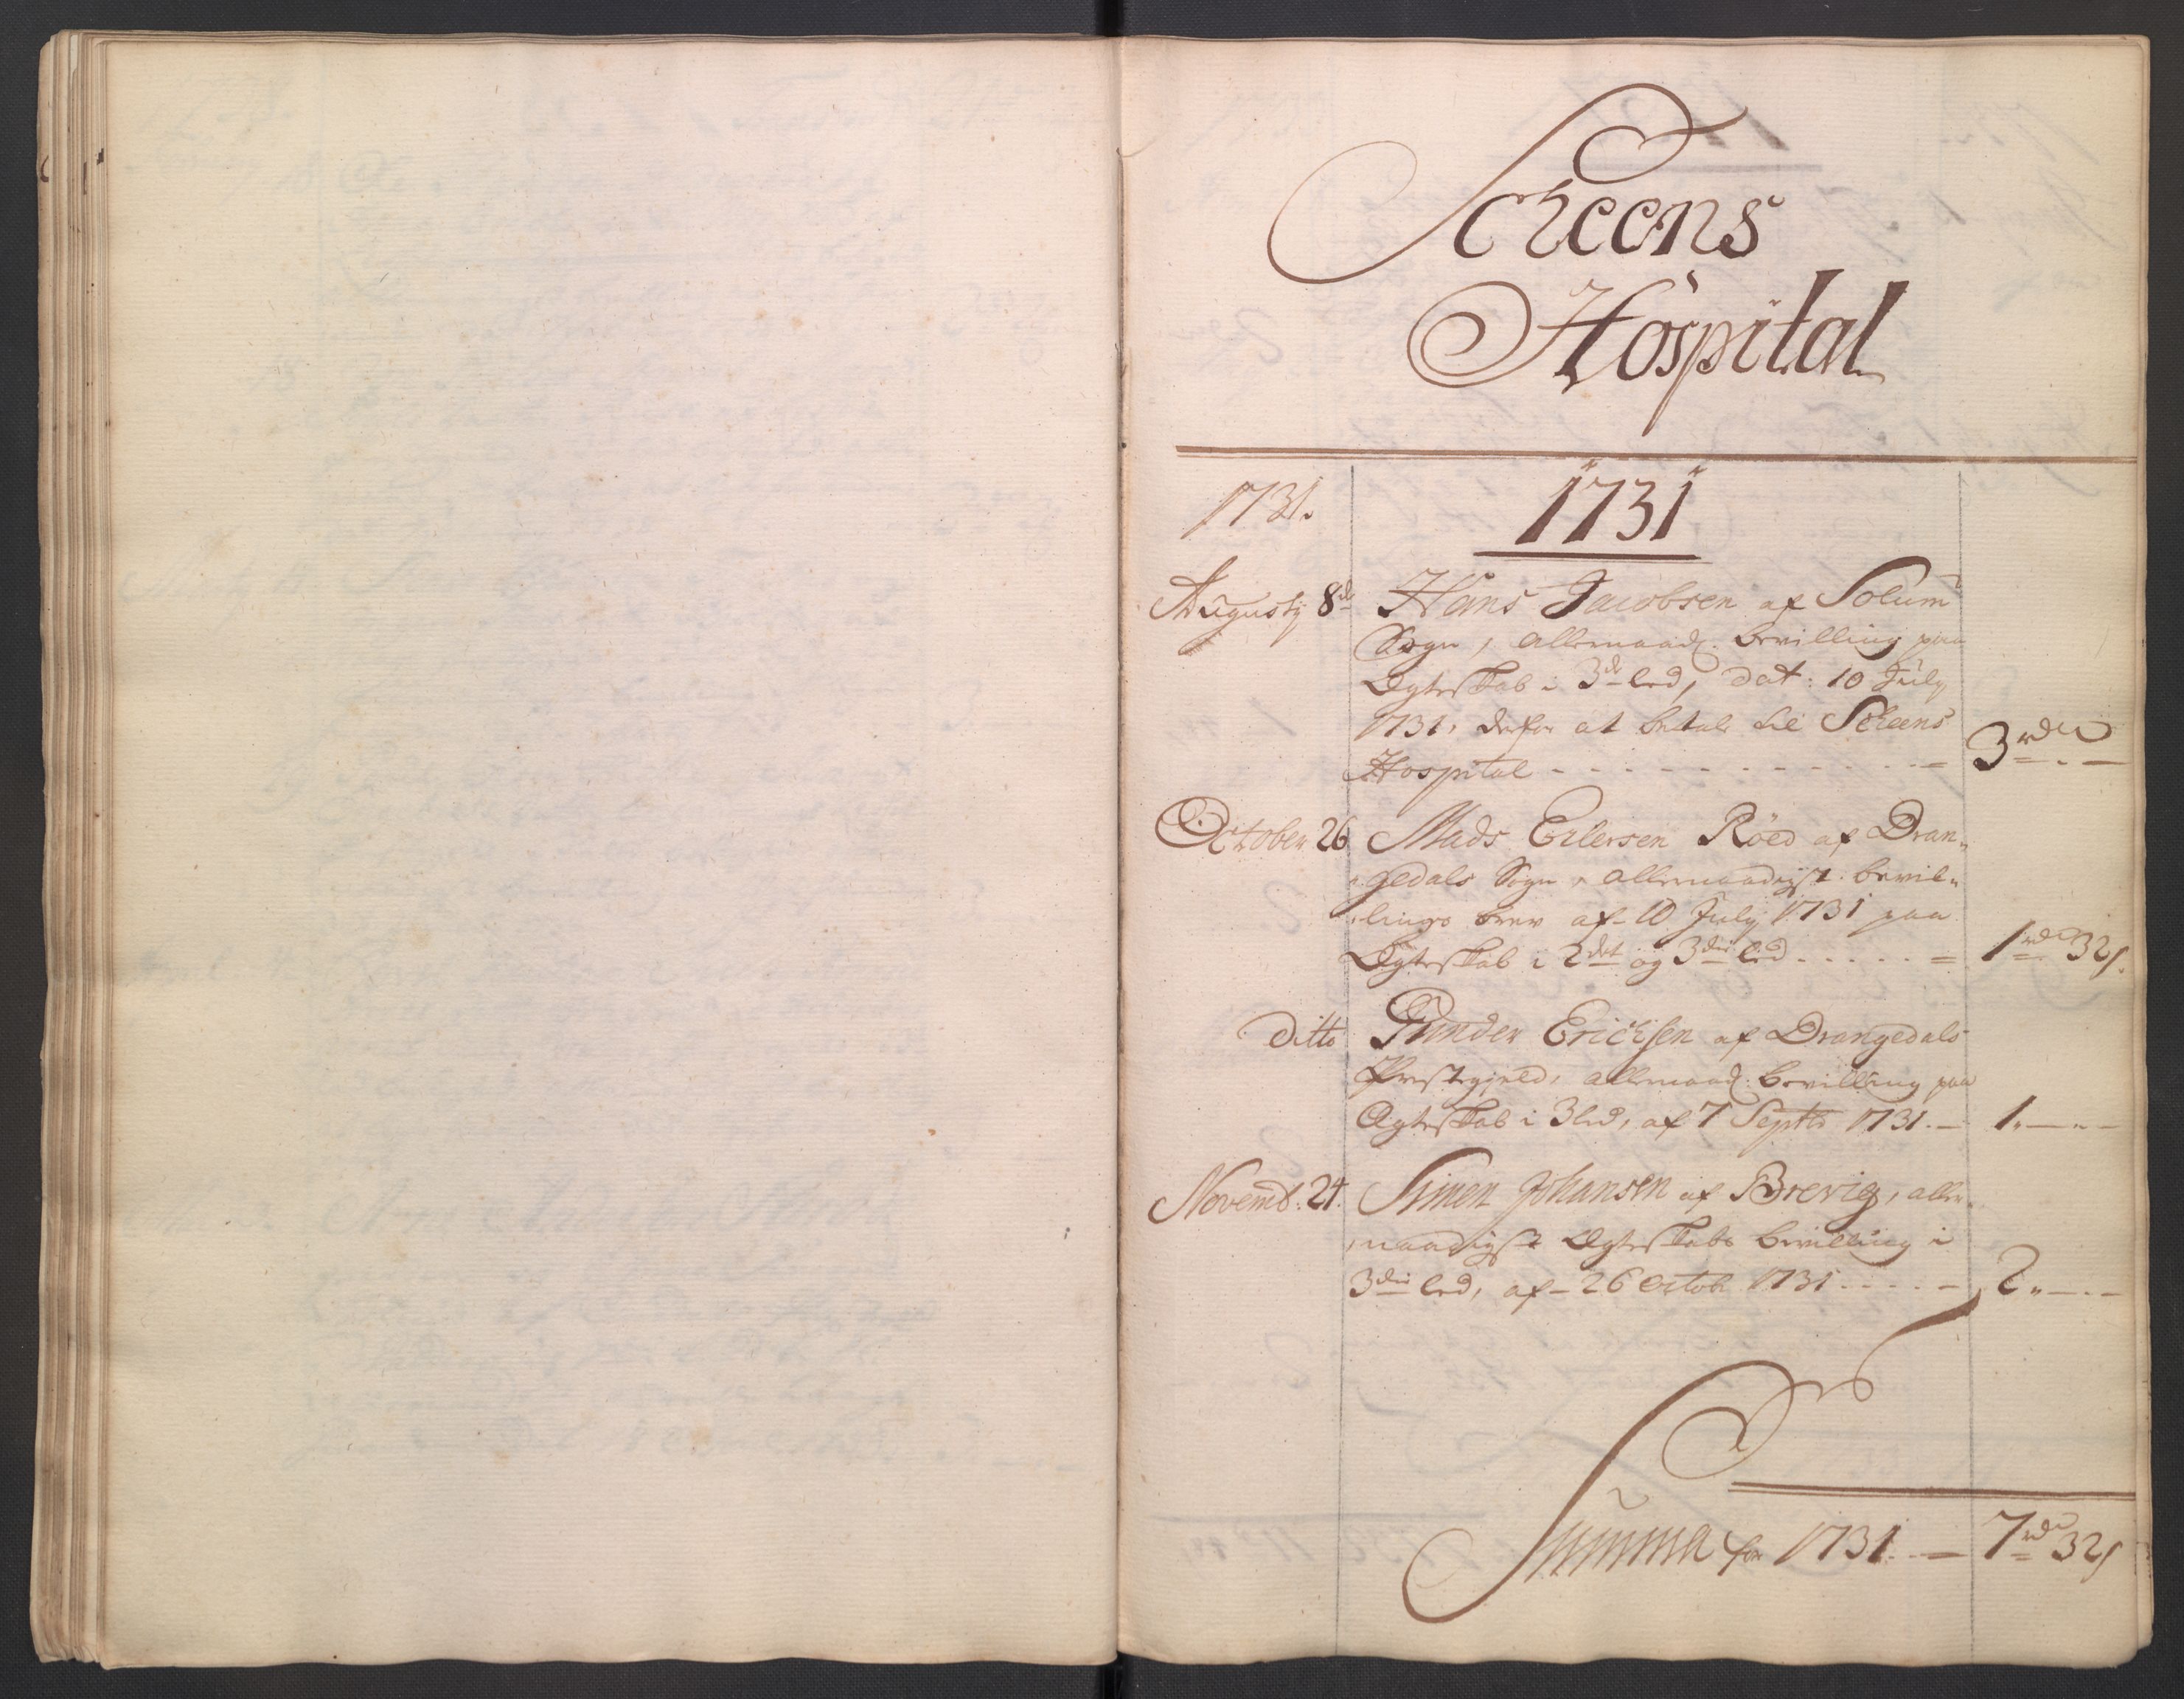 Scheens
Hospital
1731. 1731
Augusty 8de Hans Jacobsen af Solum
Sogn, allernaad. bevilling paa
Ægteskab i 3de led, dat: 10 July
1731, derfor at betale til Scheens
Hospital - - - - - - - - - = 3 rdr - . -
October 26 Mads Eilersen Röed af Dran„
„gedals Sogn, allernaadigst bevil„
„lings brev af 10 July 1731 paa
Ægteskab i 2det og 3die led - - - - - = 1 rdr 32 s.
Ditto Gunder Erichsen af Drangedals
Prestegjeld, allernaad. bevilling paa
Ægteskab i 3 led, af 7 Septb 1731. - 1„ - „ -
Novemb: 24. Simen Johansen af Brevig, aller„
„naadigst Ægteskabs bevilling i
3die led, af 26 Octob 1731 - - - - 2„ - . -
Summa for 1731. - - 7 rdr 32 s